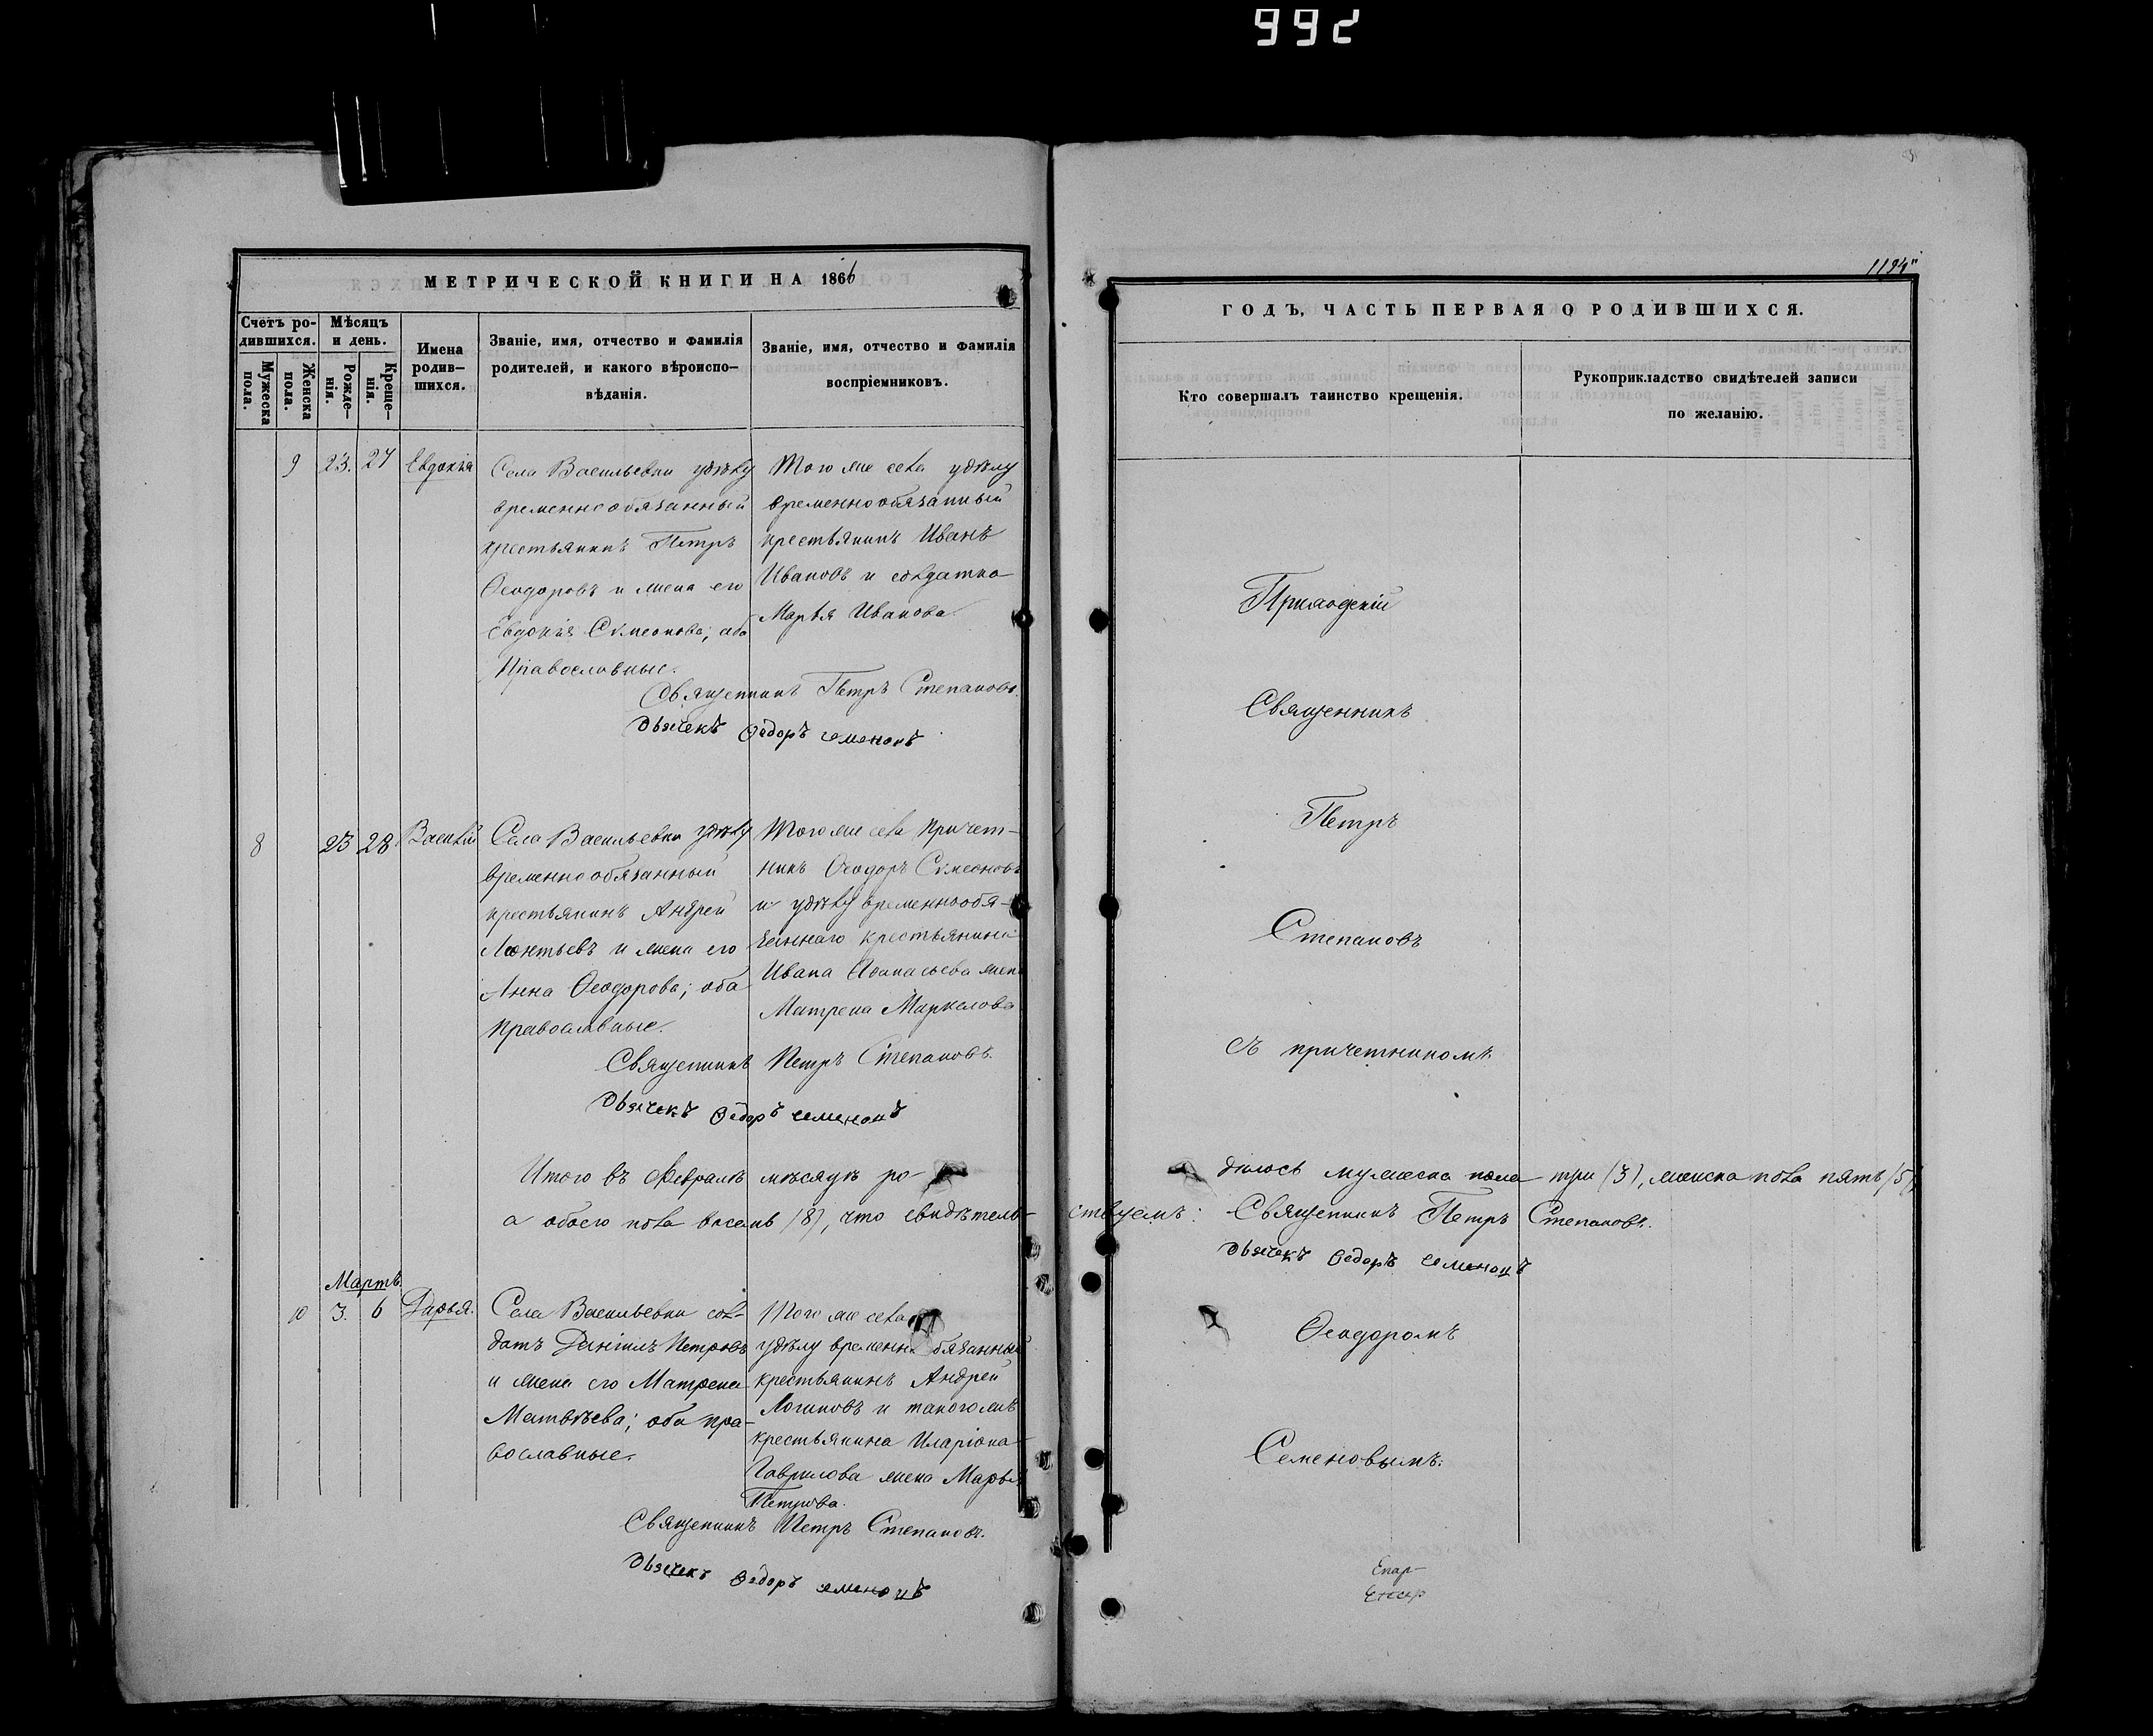 992
1194"
МЕТРИЧЕСКОЙ КНИГИ НА 1866
Счетъ ро-
дившихся.
Мѣсяцъ
и день.
Имена
родив-
шихся.
Званіе, имя, отчество и фамилія
родителей, и какого вѣроиспо-
вѣданія.
Званіе, имя, отчество и фамилія
воспріемниковъ.
Мужеска
пола.
Женска
пола.
Рожде-
нія.
Креще-
нія.
9 23. 27 Евдокія
Села Васильевки удѣлу
временнообязанный
крестьянинъ Петръ
Ѳеодоровъ и жена его
Евдокія Симеонова; оба
Православные.
Того же села удѣлу
временнообязанный
крестьянинъ Иванъ
Ивановъ и солдатка
Марья Иванова
Священникъ Петръ Степановъ.
Дьячекъ Ѳедоръ семеновъ
8 23 28 Василій
Села Васильевки удѣлу
временнообязанный
крестьянинъ Андрей
Леонтьевъ и жена его
Анна Ѳеодорова; оба
православные.
Того же села причет-
никъ Ѳеодоръ Симеоновъ
и удѣлу временнообя-
заннаго крестьянина
Ивана Аѳанасьева жена
Матрена Маркелова
Священникъ Петръ Степановъ.
Дьячекъ Ѳедоръ семеновъ
Итого въ Февралѣ мѣсяцѣ ро-
а обоего пола восемь (8), что свидѣтель-
Мартъ.
10 3. 6 Дарья.
Села Васильевки сол-
датъ Даніилъ Петровъ
и жена его Матрена
Матвѣева; оба пра-
вославные.
Того же села
удѣлу временнообязанный
крестьянинъ Андрей
Логиновъ и такогожъ
крестьянина Иларіона
Гаврилова жена Марья
Петрова.
Священникъ Петръ Степановъ.
Дьячекъ Ѳедоръ семеновъ
ГОДЪ, ЧАСТЬ ПЕРВАЯ О РОДИВШИХСЯ.
Кто совершалъ таинство крещенія.
Рукоприкладство свидѣтелей записи
по желанію.
Приходскій
Священникъ
Петръ
Степановъ
съ причетникомъ
дилось мужеска пола три (3), женска пола пять (5),
ствуемъ: Священникъ Петръ Степановъ.
Дьячекъ Ѳедоръ семеновъ
Ѳеодоромъ
Семеновымъ.
Епар-